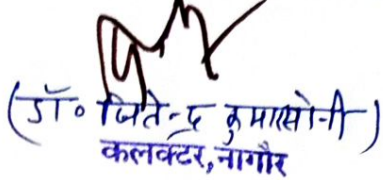 (डॉ० जितेन्द्र कुमार सोनी)
कलक्टर, नागौर